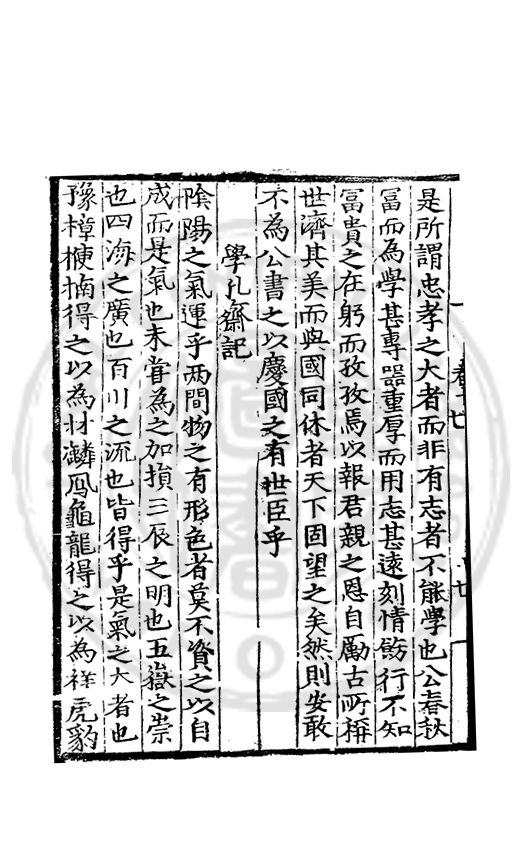 是所謂忠孝之大者而非有志者不能學也公春秋
冨而為學甚專器重厚而用志甚遠刻情飭行不知
冨貴之在躬而孜孜焉以報君親之恩自勵古所稱
世濟其美而與國同休者天下固望之矣然則安敢
不為公書之以慶國之有世臣乎
學孔齋記
陰陽之氣運乎两間物之有形色者莫不資之以自
成而是氣也未甞為之加損三辰之明也五嶽之崇
也四海之廣也百川之流也皆得乎是氣之大者也
豫樟楩楠得之以為材麟鳳龜龍得之以為祥虎豹